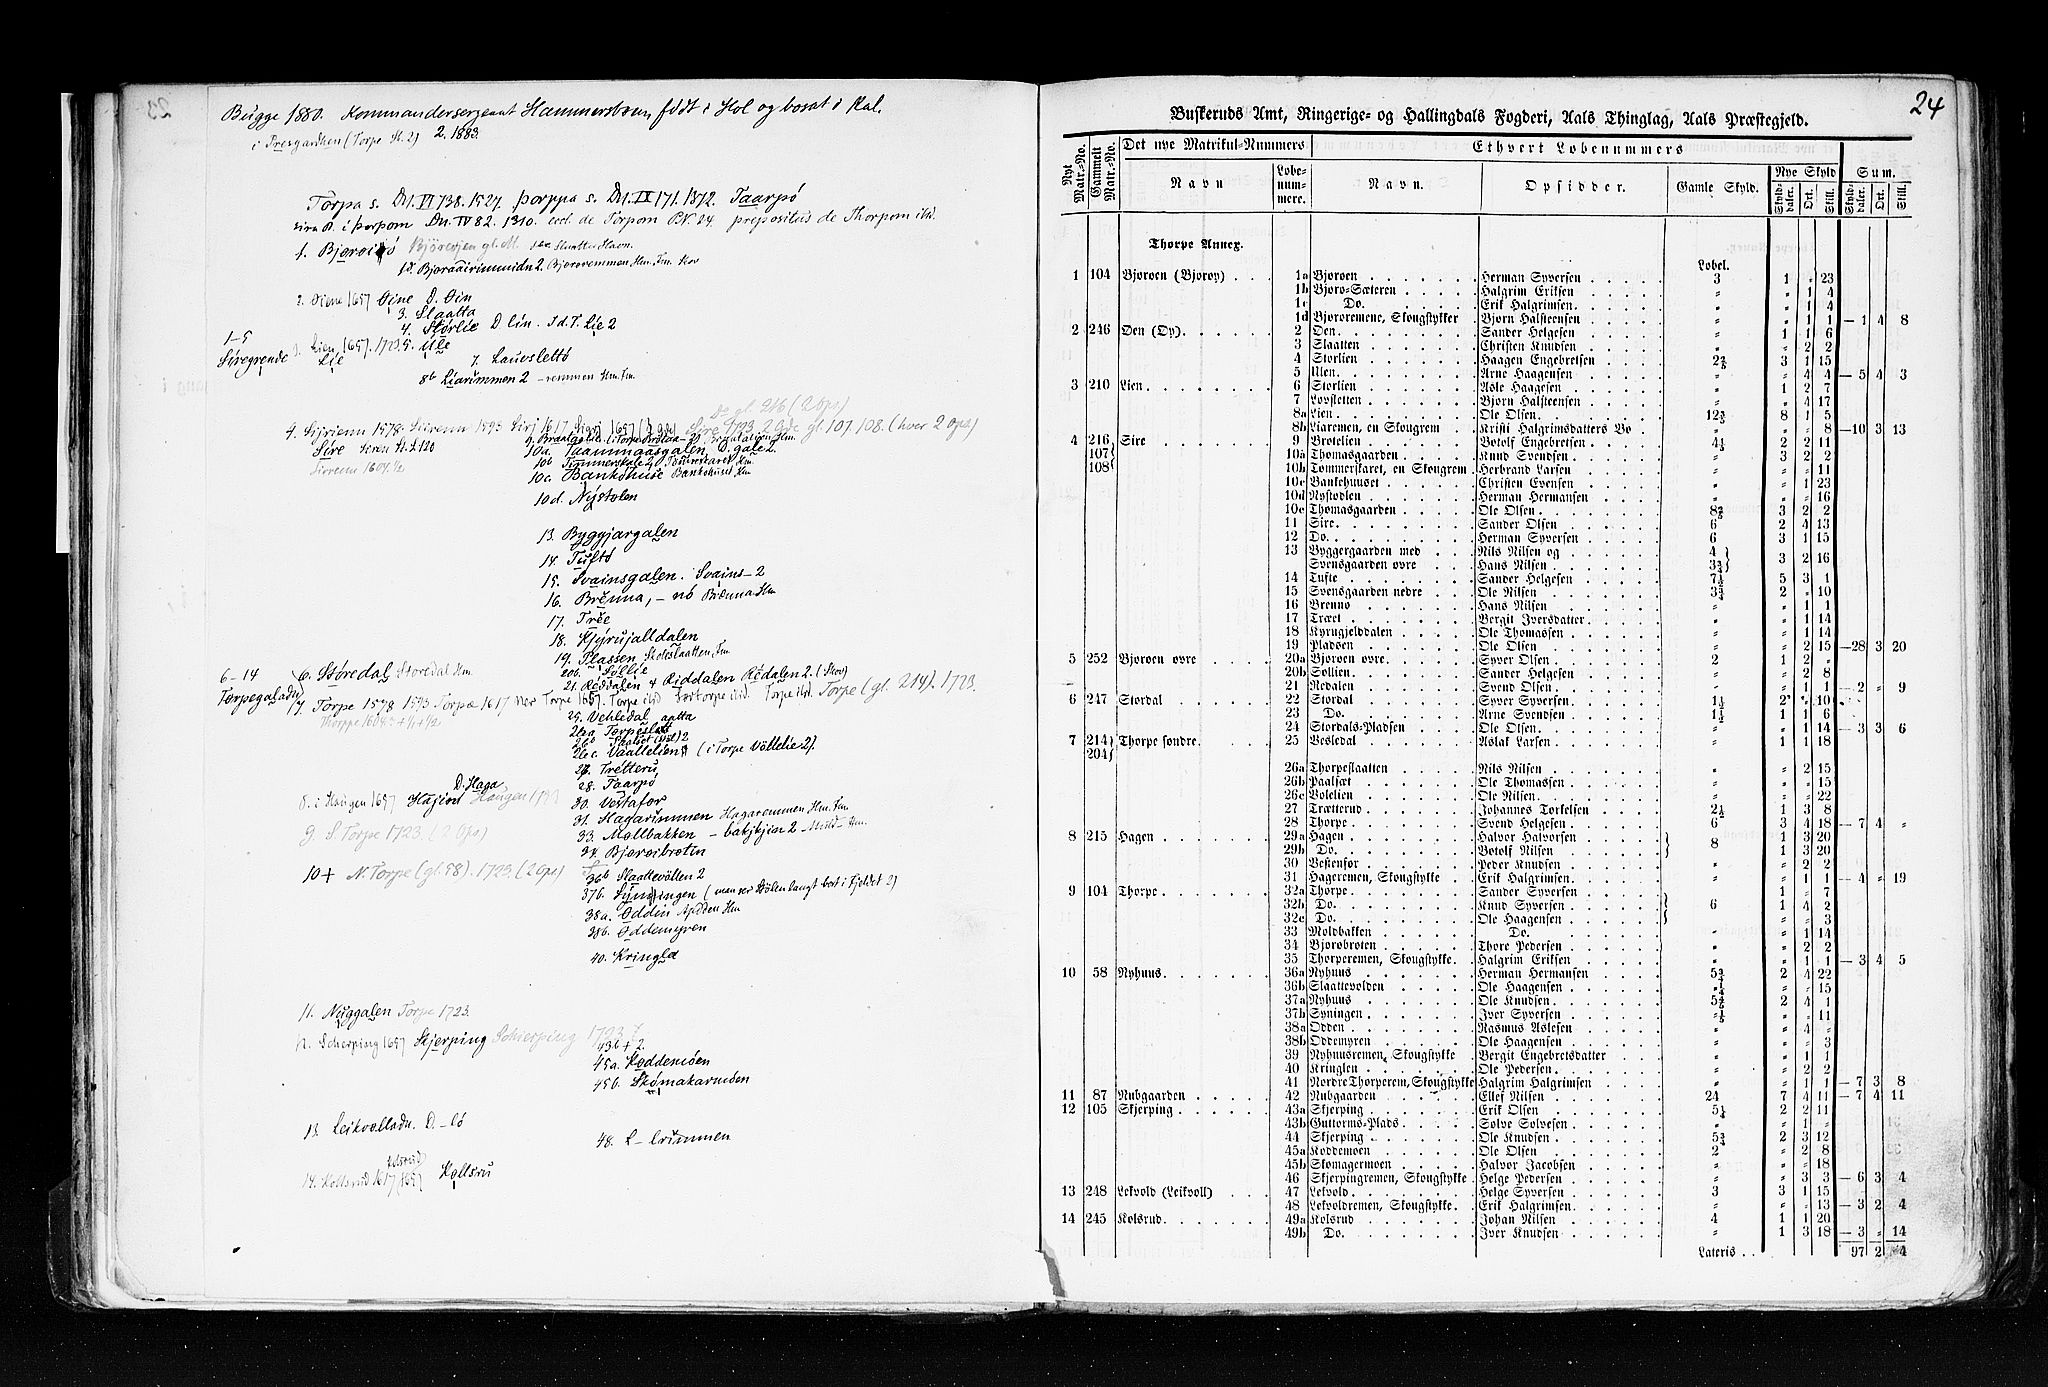 Bugge 1880. Kommandersergeant Hammersbøen, født i Hol og bosat i Aal.
i Presgardhen (Torpe St. 2) 2. 1883.
Torpa s. Dn. IV 738. 1527. Þorppa s. Dn. IX 171. 1372. Taarpö
sira P. i Þorpom Dn. IV 82. 1310. eccl. de Torpom P.N. 24. prepositus de Thorpom ibd.
1. Bjørøió Björeøjen gl. M.
1d. Bjøraairimmidn 2. Bjørøremmen Hm. Fm. Skov
2. Øiene 1657 Øine D. Øin
3. Slaatta
4. Størlie D. lin. Id. T. Lie 2
1–5
Siregrende
3. Lien 1657. 1723. 5. Ule
Lie
7. Lauvslettö
8b Liarimmen 2 – remmen Hm. Fm.
De gl. 246 (2 Ops)
4. Sijrienn 1578. Siirenn 1593 Sirj 1617 Sigrj 1657 (3 gde) Sire 1723. 2 Gde gl. 107. 108. (hver 2 ops)
Sire
Sirenn 1604. ½
10a. Taammgasgalen. D. gale 2.
10b Timmerskale 2, Tömmerskaret Hm.
10c. Bankehuse Bankehuset Hm
10d. Nystolen
13. Byggjargalen
14. Tuftö
15. Svainsgalen. Svains– 2
16. Brénna, – nó Brenna Hm
17. Trée
18. Kjyrujalldalen
19. Plassen Skoleslaatten Fm.
6–14
Torpegaladn
6. Støredal Storedal Hm.
20b. Sollie
21. Reddalen & Riddalen Rèdalen 2. (Skov)
7. Torpe 1578 1593 Torpæ 1617 Nør Torpe 1657. Torpe ibid Torpe ibd. Torpe (gl. 214). 1723.
25. Vehledal
26a Torpeslatt
26c. Vaattelien (i Torpe Vöttelie 2).
27. Trètteru
28. Taarpö
D. Haga
8. i Haugen 1657 Hajiøn Haugen 1723
30. Vestafor
31. Hagarimmen Hagaremmen Hm. Fm
9. S. Torpe 1723. (2 Ops)
33. Mollbakken – bakjkjin 2 – Mold– Hm.
34. Bjørøibrotin
10 + N. Torpe (gl. 58). 1723. (2 Ops)
36b Slaattevöllen 2
37b. Syningen (man ser Dölen langt bort i Fjeldet 2)
38a. Oddin Odden Hm
38b. Oddemyren
40. Kringla
11. Nuggalen Torpe 1723.
12. Schierping 1657 Skjerping Schierping 1723.
43b + 2.
45a. Koddemóen
45b. Skómakarmóen
13. Leikvolladn. D. –ló
48. L – lrimmen
14. Kollsrud 1617 1657 Kollsru
24
Buskeruds Amt, Ringerige- og Hallingdals Fogderi, Aals Thinglag, Aals Præstegjeld.
Nyt Matr.-No. Gammelt Matr.-No. Det nye Matrikul-Nummers Ethvert Løbenummers
Navn Løbe-nummere. Navn. Opsidder. Gamle Skyld. Nye Skyld Sum.
Skylddaler. Ort. Skill. Skylddaler. Ort. Skill.
Thorpe Annex.
Løbel.
1 104 Bjørøen (Bjørøy) 1a Bjørøen Herman Syversen 3 1 " 23
1b Bjørø-Sæteren Halgrim Eriksen " " 1 4
1c Do. Erik Halgrimsen " " " 4
1d Bjørøremene, Skougstykker Bjørn Halsteensen " " 1 1 — 1 4 8
2 246 Øen (Øy) 2 Øen Sander Helgesen " 1 1 6
3 Slaatten Christen Knudsen " " 2 2
4 Storlien Haagen Engebretsen 2⅖ 3 1 15
5 Ulen Arne Haagensen " " 4 4 — 5 4 3
3 210 Lien 6 Storlien Asle Haagesen " " 2 7
7 Løvsletten Bjørn Halsteensen " " 4 17
8a Lien Ole Olsen 12⅗ 8 1 5
8b Liaremen, en Skougrem Kristi Halgrimsdatters Bo " " " 8 — 10 3 13
4 216 Sire 9 Brotelien Botolf Engebretsen 4½ 2 2 11
107 10a Thomasgaarden Knud Svendsen " 3 2 2
108 10b Tømmerskaret, en Skougrem Herbrand Larsen " " " 11
10c Bankehuuset Christen Evensen " " 1 23
10d Nystødlen Herman Hermansen " " " 16
10e Thomasgaarden Ole Olsen 8⅖ 3 2 2
11 Sire Sander Olsen 6 2 4 13
12 Do. Herman Syversen 6 3 1 15
13 Byggergaarden med Nils Nilsen og 4 3 2 16
Svensgaarden øvre Hans Nilsen 3¾
14 Tufte Sander Helgesen 7½ 5 3 1
15 Svensgaarden nedre Ole Nilsen 3¾ 2 " 10
16 Brenno Hans Nilsen " " 1 1
17 Træet Bergit Iversdatter " " 1 14
18 Kyrugjelddalen Ole Thomassen " " 1 14
19 Pladsen Ole Olsen " " 2 15 — 28 3 20
5 252 Bjørøen øvre 20a Bjørøen øvre Syver Olsen 2 1 2 "
20b Sollien Sander Helgesen " " 2 8
21 Redalen Svend Olsen " " 1 1 — 2 " 9
6 247 Stordal 22 Stordal Syver Syversen 1½ 2 " 10
23 Do. Arne Svendsen 1½ 1 1 6
24 Stordals-Pladsen Ole Olsen " " 1 14 — 3 3 6
7 214 Thorpe søndre 25 Vesledal Aslak Larsen " 1 1 18
204
26a Thorpeslaatten Nils Nilsen " " 2 15
26b Paalsæt Ole Thomassen " " " 15
26c Votelien Ole Nilsen " " " 22
27 Trætterud Johannes Torkelsen 2½ 1 3 8
28 Thorpe Svend Helgesen 6 3 4 18 — 7 4 "
8 215 Hagen 29a Hagen Halvor Halvorsen 8 1 3 20
29b Do. Botolf Nilsen 1 3 20
30 Vestenfor Peder Knudsen " " 2 2
31 Hageremen, Skougstykke Erik Halgrimsen " " 1 1 — 4 " 19
9 104 Thorpe 32a Thorpe Sander Syversen 6 1 " 7
32b Do. Knud Syversen 1 4 2
32c Do. Ole Haagensen " " 3
33 Moldbakken Do. " " 1 14
34 Bjørøbroten Thore Pedersen " " 2 2
35 Thorperemen, Skougstykke Halgrim Eriksen " " 1 1 — 3 4 5
10 58 Nyhuus 36a Nyhuus Herman Hermansen 5¾ 2 4 22
36b Slaattevolden Ole Haagensen ¼ " " 15
37a Nyhuus Ole Knudsen 2 4 1
37b Syningen Iver Syversen " " 11
38a Odden Rasmus Aslesen " " 4 "
38b Oddemyren Ole Haagensen " " " 3
39 Nyhuusremen, Skougstykke Bergit Engebretsdatter " " 1 1
40 Kringlen Ole Pedersen " " 2 2
41 Nordre Thorperem, Skougstykke Halgrim Halgrimsen " " 1 1 — 7 3 8
11 87 Nubgaarden 42 Nubgaarden Ellef Nilsen 24 7 4 11 — 7 4 11
12 105 Skjerping 43a Skjerping Erik Olsen 5¼ 2 2 11
43b Guttorms-Plads Sølve Sølvesen " " 1 "
44 Skjerping Ole Knudsen 5¾ 2 3 12
45a Koddemoen Ole Olsen 2 " 2 8
45b Skomagermoen Halvor Jacobsen " " " 18
46 Skjerpingremen, Skougstykke Helge Pedersen " " 3 3 — 6 3 4
13 248 Lekvold (Leikvoll) 47 Lekvold Helge Syversen 3 3 1 15
48 Lekvoldremen, Skougstykke Erik Halgrimsen " " " 13 — 3 2 4
14 245 Kolsrud 49a Kolsrud Johan Nilsen 4 1 1 20
49b Do. Iver Knudsen 1 3 18 — 3 " 14
Lateris 97 2 4